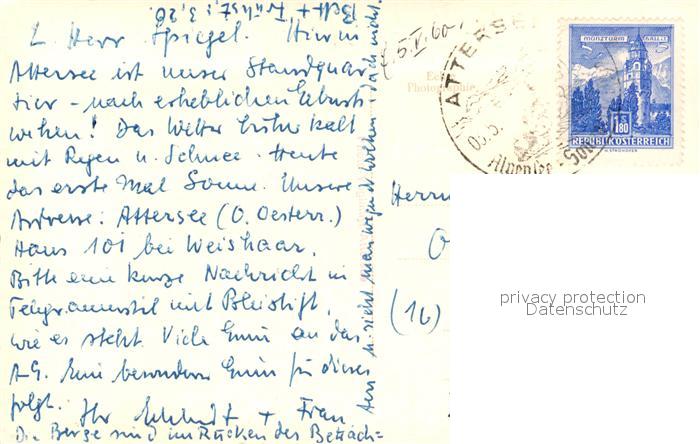 5.V.60.
L. Herr Spiegel. Hier in
Attersee ist unser Standquar-
tier - nach erheblichen Geburts-
wehen! Das Wetter bisher kalt
mit Regen u. Schnee. Heute
das erste Mal Sonne. Unsere
Adresse: Attersee (O. Oesterr.)
Haus 101 bei Weishaar.
Bitte eine kurze Nachricht im
Telegrammstil mit Bleistift,
wie es steht. Viele Grüße an das
AG. Eine besondere Gruß für dieses
folgt.
Ihr + Frau
Die Berge sind im Rücken des Betrach=
ters u. nicht man wegen d. Wolken doch nicht.
Bett + Frühst.: 3,20
Echte
Photographie
ATTERSEE
MÜNZTURM HALL i.T.
S 1.80
REPUBLIK ÖSTERREICH
Herrn
O
(16)
privacy protection
Datenschutz